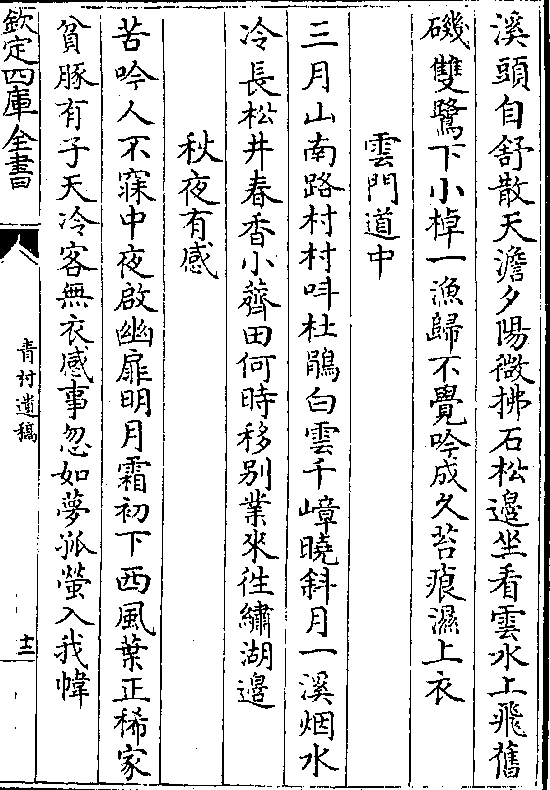 溪頭自舒散天澹夕陽微拂石松邉坐看雲水上飛舊
磯雙鷺下小棹一漁歸不覺吟成久苔痕濕上衣
雲門道中
三月山南路村村叫杜鵑白雲千嶂曉斜月一溪烟水
冷長松井春香小薺田何時移别業來徃繡湖邉
秋夜有感
苦吟人不寐中夜啟幽扉明月霜初下西風葉正稀家
貧豚有子天冷客無衣感事忽如夢孤螢入我幃
欽定四庫全書
青村遺稿
十二